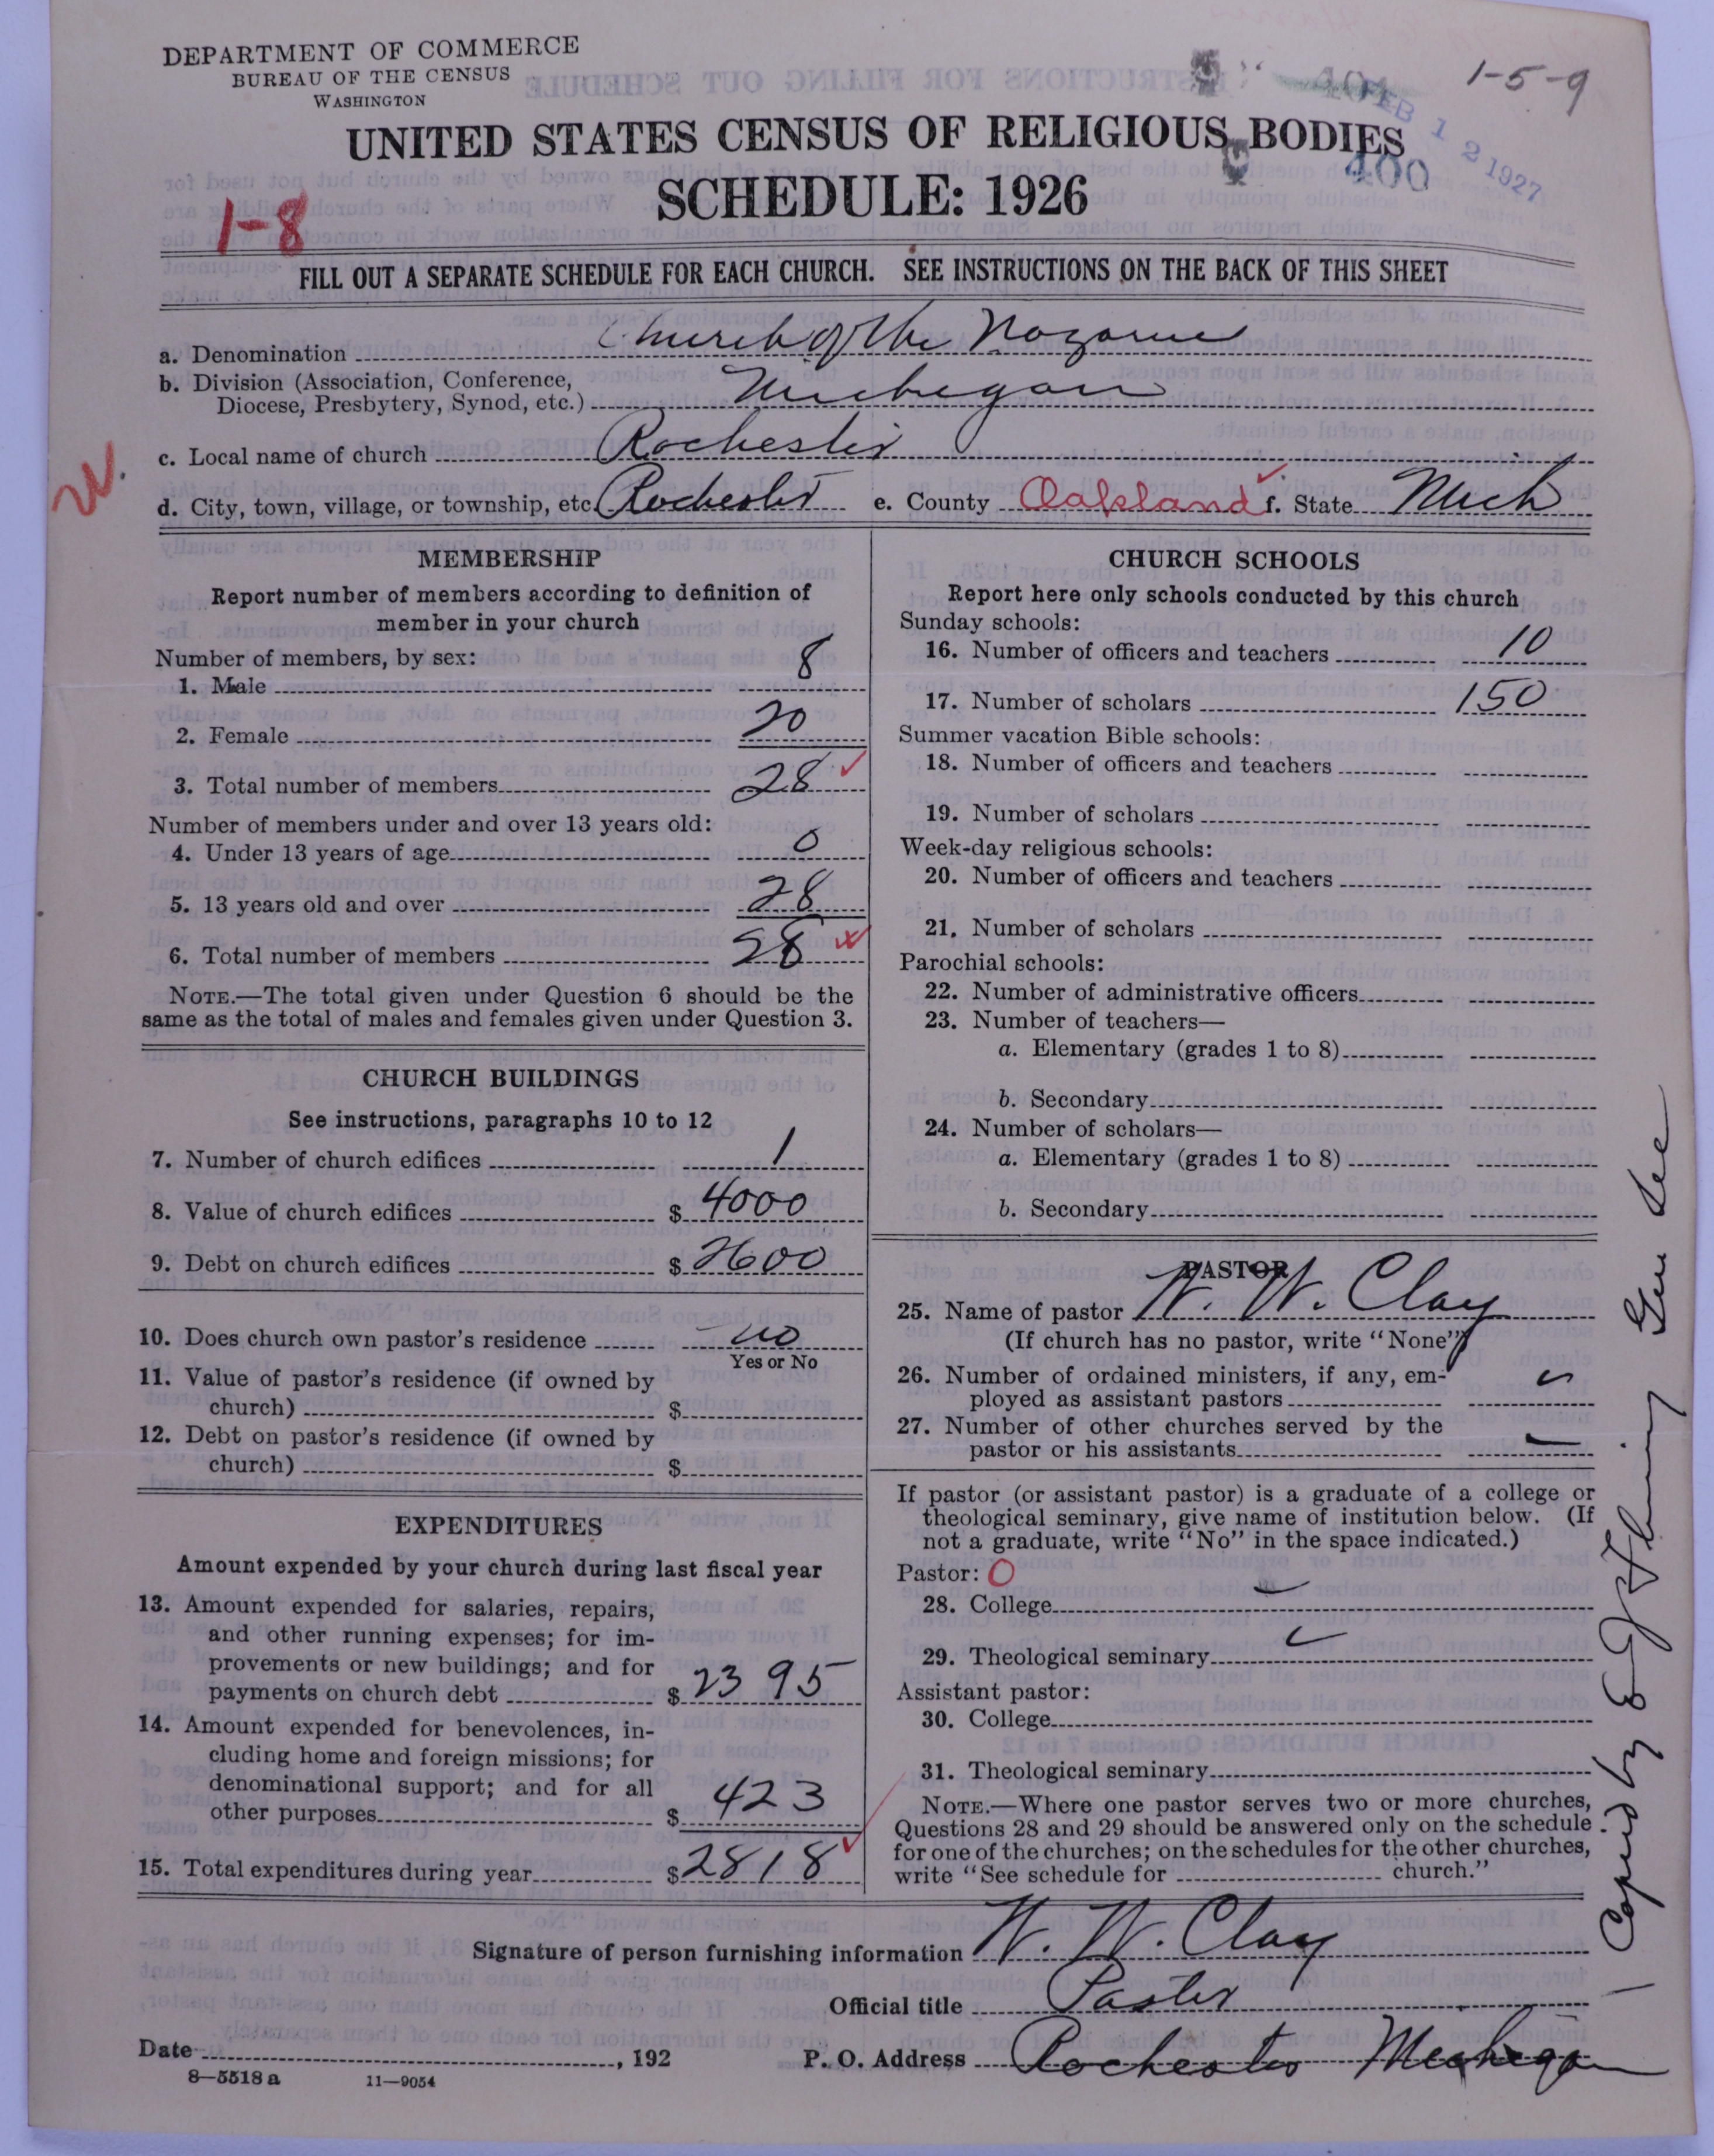 DEPARTMENT OF COMMERCE
BUREAU OF THE CENSUS
WASHINGTON
1-5-9
FEB 12 1927
UNITED STATES CENSUS OF RELIGIOUS BODIES
400
SCHEDULE: 1926
1-8
FILL OUT A SEPARATE SCHEDULE FOR EACH CHURCH. SEE INSTRUCTIONS ON THE BACK OF THIS SHEET
a. Denomination Church of the Nazarene
b. Division (Association, Conference,
Diocese, Presbytery, Synod, etc.) Michigan
c. Local name of church Rochester
W.
d. City, town, village, or township, etc. Rochester e. County Oakland f. State Mich
MEMBERSHIP
Report number of members according to definition of
member in your church
Number of members, by sex:
1. Male 8
2. Female 20
3. Total number of members 28
Number of members under and over 13 years old:
4. Under 13 years of age 0
5. 13 years old and over 28
6. Total number of members 28
NOTE.—The total given under Question 6 should be the
same as the total of males and females given under Question 3.
CHURCH BUILDINGS
See instructions, paragraphs 10 to 12
7. Number of church edifices 1
8. Value of church edifices $ 4000
9. Debt on church edifices $ 2600
10. Does church own pastor's residence no
Yes or No
11. Value of pastor's residence (if owned by
church) $
12. Debt on pastor's residence (if owned by
church) $
EXPENDITURES
Amount expended by your church during last fiscal year
13. Amount expended for salaries, repairs,
and other running expenses; for im-
provements or new buildings; and for
payments on church debt $ 2395
14. Amount expended for benevolences, in-
cluding home and foreign missions; for
denominational support; and for all
other purposes $ 423
15. Total expenditures during year $ 2818
CHURCH SCHOOLS
Report here only schools conducted by this church
Sunday schools:
16. Number of officers and teachers 10
17. Number of scholars 150
Summer vacation Bible schools:
18. Number of officers and teachers
19. Number of scholars
Week-day religious schools:
20. Number of officers and teachers
21. Number of scholars
Parochial schools:
22. Number of administrative officers
23. Number of teachers—
a. Elementary (grades 1 to 8)
b. Secondary
24. Number of scholars—
a. Elementary (grades 1 to 8)
b. Secondary
PASTOR
25. Name of pastor W. W. Clay
(If church has no pastor, write "None")
26. Number of ordained ministers, if any, em-
ployed as assistant pastors
27. Number of other churches served by the
pastor or his assistants
If pastor (or assistant pastor) is a graduate of a college or
theological seminary, give name of institution below. (If
not a graduate, write "No" in the space indicated.)
Pastor: O
28. College
29. Theological seminary
Assistant pastor:
30. College
31. Theological seminary
NOTE.—Where one pastor serves two or more churches,
Questions 28 and 29 should be answered only on the schedule
for one of the churches; on the schedules for the other churches,
write "See schedule for church."
Copied by E J Fleming Gen Sec
Signature of person furnishing information W. W. Clay
Official title Pastor
Date , 192 P. O. Address Rochester Michigan
8—5518 a 11—9054